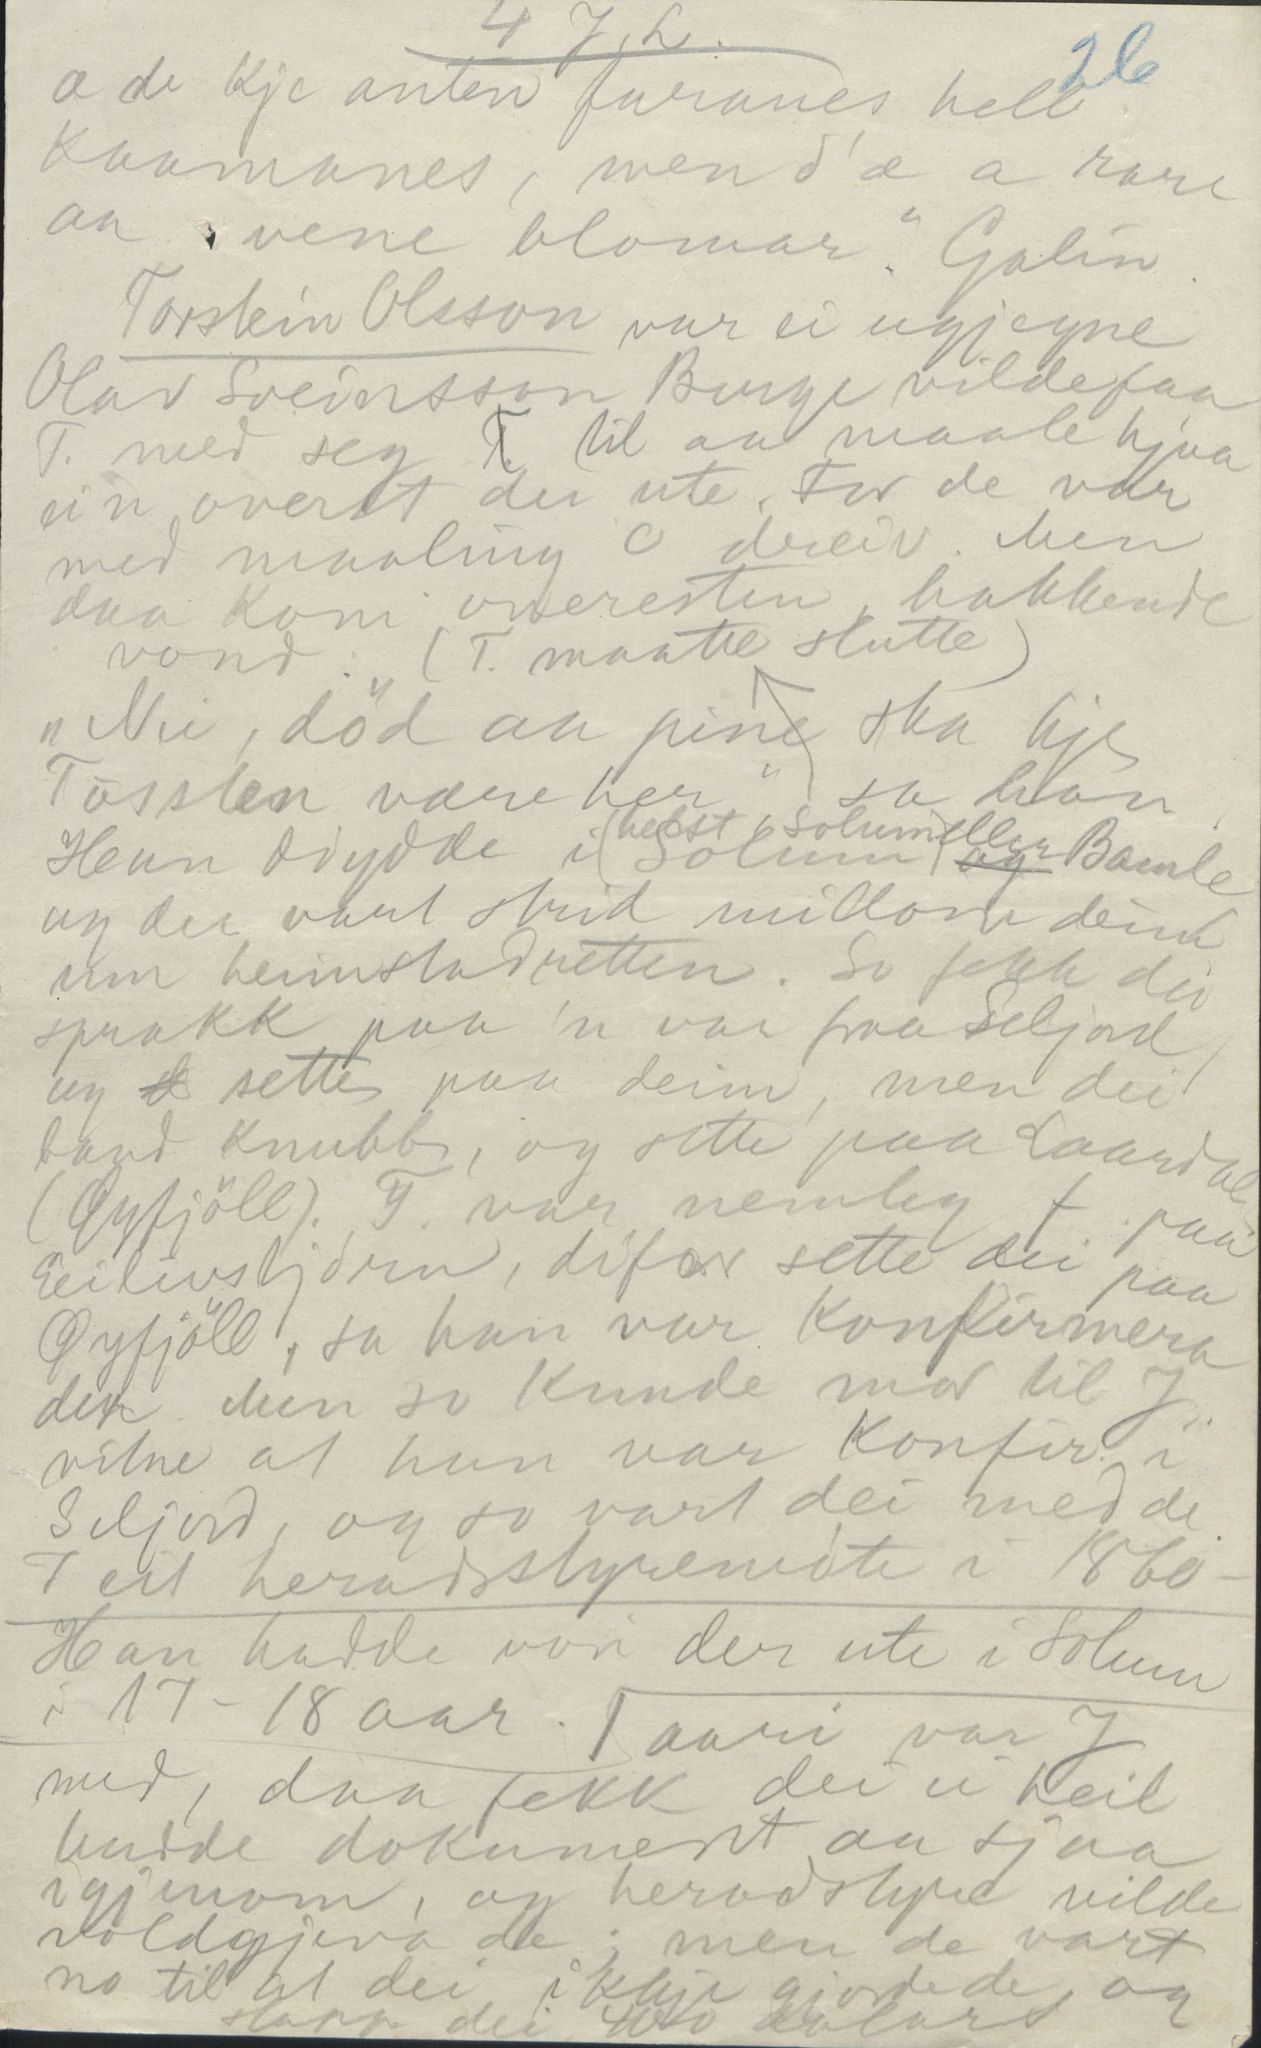 4 J. L.
26
æ de kje anten furunes hell
kaamanes, men d'æ a rare
aa vene blomar." Galin.
Torstein Olsson var ei ugjegne
Olav Sveinsson Burge vilde faa
T. med seg T. til aa maale hjaa
ein overst der ute. For de var
med maaling o dreiv. Men
daa kom oversten, hakkende
vond. (T. maatte slutte)
"Nei, död aa pine ska kje
Tossten være her" sa han.
Han döydde i (helst i Solum eller
Solum) og Bamle
og der vart strid millom deim
um heimstadretten. So fekk dei
sprakk paa 'n var fraa Seljord,
og sette paa deim, men dei
band knubb, og sette paa Laardal
(Öyfjöll). T. var nemleg f. paa
Eilivstjörn, difor sette dei paa
Öyfjöll, sa han var konfirmera
der. Men so kunde mor til J.
vitne at han var konfir. i
Seljord, og so vart dei med de.
T eit heradsstyremöte i 1860 -
Han hadde vori der ute i Solum
i 17-18 aar. I aari var J
med, daa fekk dei ei heil
budde dokument aa sjaa
igjenom, og heradstyre vilde
voldgjeva de; men de vart
no til at dei ikkje gjorde de, og
slapp dei 400 dalars